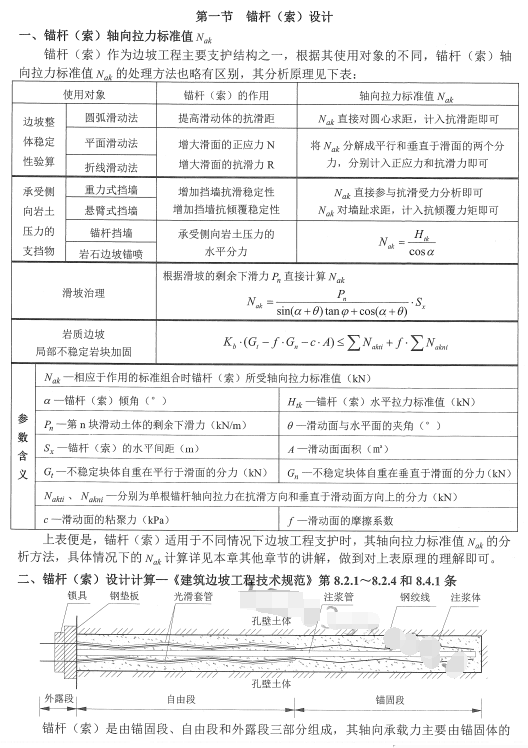 第一节　锚杆（索）设计
一、锚杆（索）轴向拉力标准值 Nak
锚杆（索）作为边坡工程主要支护结构之一，根据其使用对象的不同，锚杆（索）轴
向拉力标准值 Nak 的处理方法也略有区别，其分析原理见下表：
使用对象　锚杆（索）的作用　轴向拉力标准值 Nak
边坡整体稳定性验算
圆弧滑动法　提高滑动体的抗滑距　Nak 直接对圆心求距，计入抗滑距即可
平面滑动法　增大滑面的正应力 N　将 Nak 分解成平行和垂直于滑面的两个分
折线滑动法　增大滑面的抗滑力 R　力，分别计入正应力和抗滑力即可
承受侧向岩土压力的支挡物
重力式挡墙　增加挡墙抗滑稳定性　Nak 直接参与抗滑受力分析即可
悬臂式挡墙　增加挡墙抗倾覆稳定性　Nak 对墙趾求距，计入抗倾覆力矩即可
锚杆挡墙　承受侧向岩土压力的　Nak = Htk / cosα
岩石边坡锚喷　水平分力
滑坡治理　根据滑坡的剩余下滑力 Pn 直接计算 Nak
Nak = Pn / (sin(α+θ)tanφ+cos(α+θ)) · Sx
岩质边坡
局部不稳定岩块加固　Kb·(Gt − f·Gn − c·A) ≤ ∑Nakti + f·∑Nakni
参数含义
Nak —相应于作用的标准组合时锚杆（索）所受轴向拉力标准值（kN）
α —锚杆（索）倾角（°）　Htk —锚杆（索）水平拉力标准值（kN）
Pn —第 n 块滑动土体的剩余下滑力（kN/m）　θ —滑动面与水平面的夹角（°）
Sx —锚杆（索）的水平间距（m）　A —滑动面面积（㎡）
Gt —不稳定块体自重在平行于滑面的分力（kN）　Gn —不稳定块体自重在垂直于滑面的分力（kN）
Nakti 、 Nakni —分别为单根锚杆轴向拉力在抗滑方向和垂直于滑动面方向上的分力（kN）
c —滑动面的粘聚力（kPa）　f —滑动面的摩擦系数
上表便是，锚杆（索）适用于不同情况下边坡工程支护时，其轴向拉力标准值 Nak 的分
析方法，具体情况下的 Nak 计算详见本章其他章节的讲解，做到对上表原理的理解即可。
二、锚杆（索）设计计算—《建筑边坡工程技术规范》第 8.2.1～8.2.4 和 8.4.1 条
锁具　钢垫板　光滑套管　注浆管　钢绞线　注浆体
孔壁土体
孔壁土体
外露段　自由段　锚固段
锚杆（索）是由锚固段、自由段和外露段三部分组成，其轴向承载力主要由锚固体的